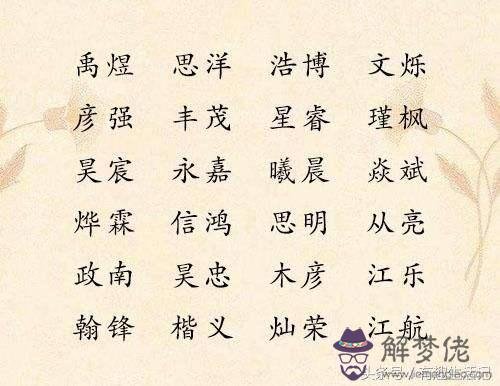 禹煜 思洋 浩博 文烁
彦强 丰茂 星睿 瑾枫
昊宸 永嘉 曦晨 焱斌
烨霖 信鸿 思明 从亮
政南 昊忠 木彦 江乐
翰锋 楷义 灿荣 江航
解梦佬